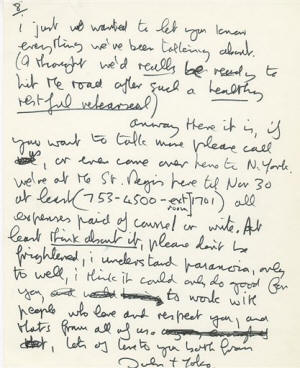 8.
i just wanted to let you know
everything we've been talking about.
(I thought we'd really be ready to
hit the road after such a healthy
restful rehearsal)
anyway there it is, if
you want to talk more please call
us, or even come over here to N. York.
we're at the St. Regis here til Nov 30
at least (753-4500-ext room 1701) all
expenses paid of course! or write. At
least think about it, please don't be
frightened, i understand paranoia, only
to well, i think it could only do good for
you, to work with
people who love and respect you, and
that's from all of us
lots of love to you both from
John + Yoko